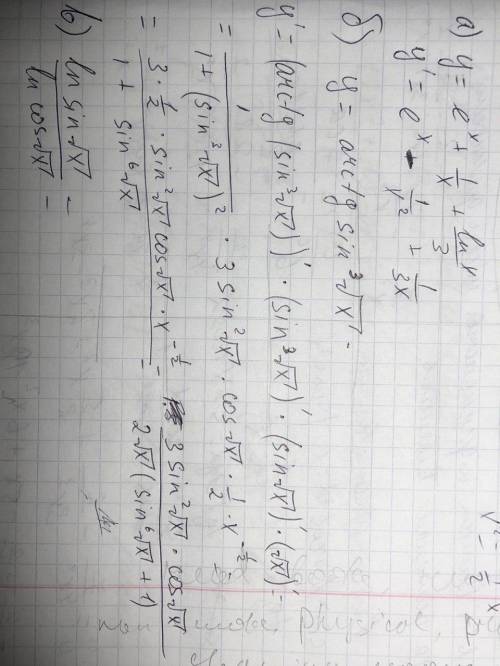 а) y = e^x + 1/x + ln x/3
y' = e^x - 1/x² + 1/3x
б) y = arctg sin³√x -
y' = (arctg (sin³√x))' · (sin³√x)' · (sin√x)' · (√x)' =
= 1/(1 + (sin³√x)²) · 3 sin²√x · cos√x · 1/2 · x^(-1/2) =
= (3 · 1/2 · sin²√x cos√x · x^(-1/2))/(1 + sin⁶√x) = (3 sin²√x · cos√x)/(2√x (sin⁶√x + 1))
в) ln sin√x/ln cos√x =